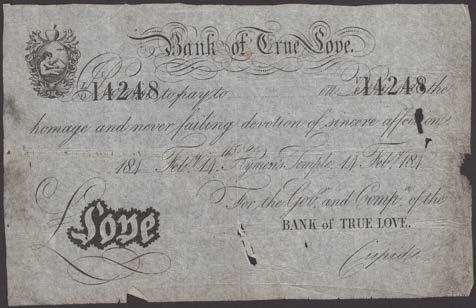 Bank of True Love.
14248 to pay to on 14248 the
homage and never failing devotion of sincere affection
184 Feby. 14 Hymen's Temple, 14 Feby. 184
For the Govr. and Compy. of the
£ Love BANK of TRUE LOVE.
Cupid